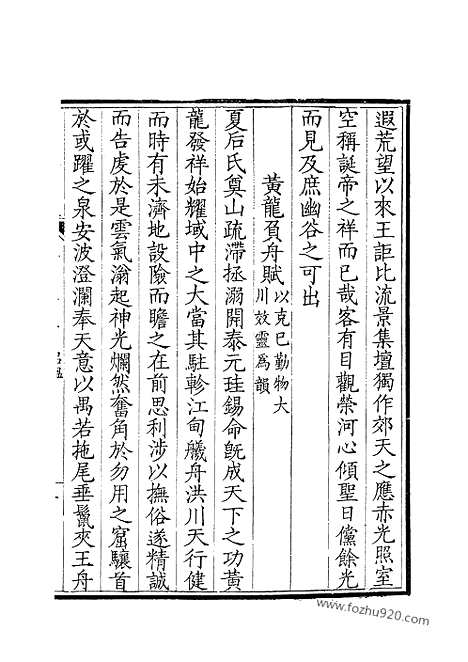 遐荒望以來王詎比流景集壇獨作郊天之應赤光照室
空稱誕帝之祥而已哉客有目觀榮河心傾聖日儻餘光
而見及庶幽谷之可出
黃龍負舟賦以克已勤物大
川效靈爲韻
夏后氏奠山疏滯拯溺開泰元珪錫命旣成天下之功黃
龍發祥始耀域中之大當其駐軫江甸艤舟洪川天行健
而時有未濟地設險而瞻之在前思利涉以撫俗遂精誠
而告虔於是雲氣滃起神光爛然奮角於勿用之窟驤首
於或躍之泉安波澄瀾奉天意以禺若拖尾垂鬣夾王舟
www.fozhu920.com